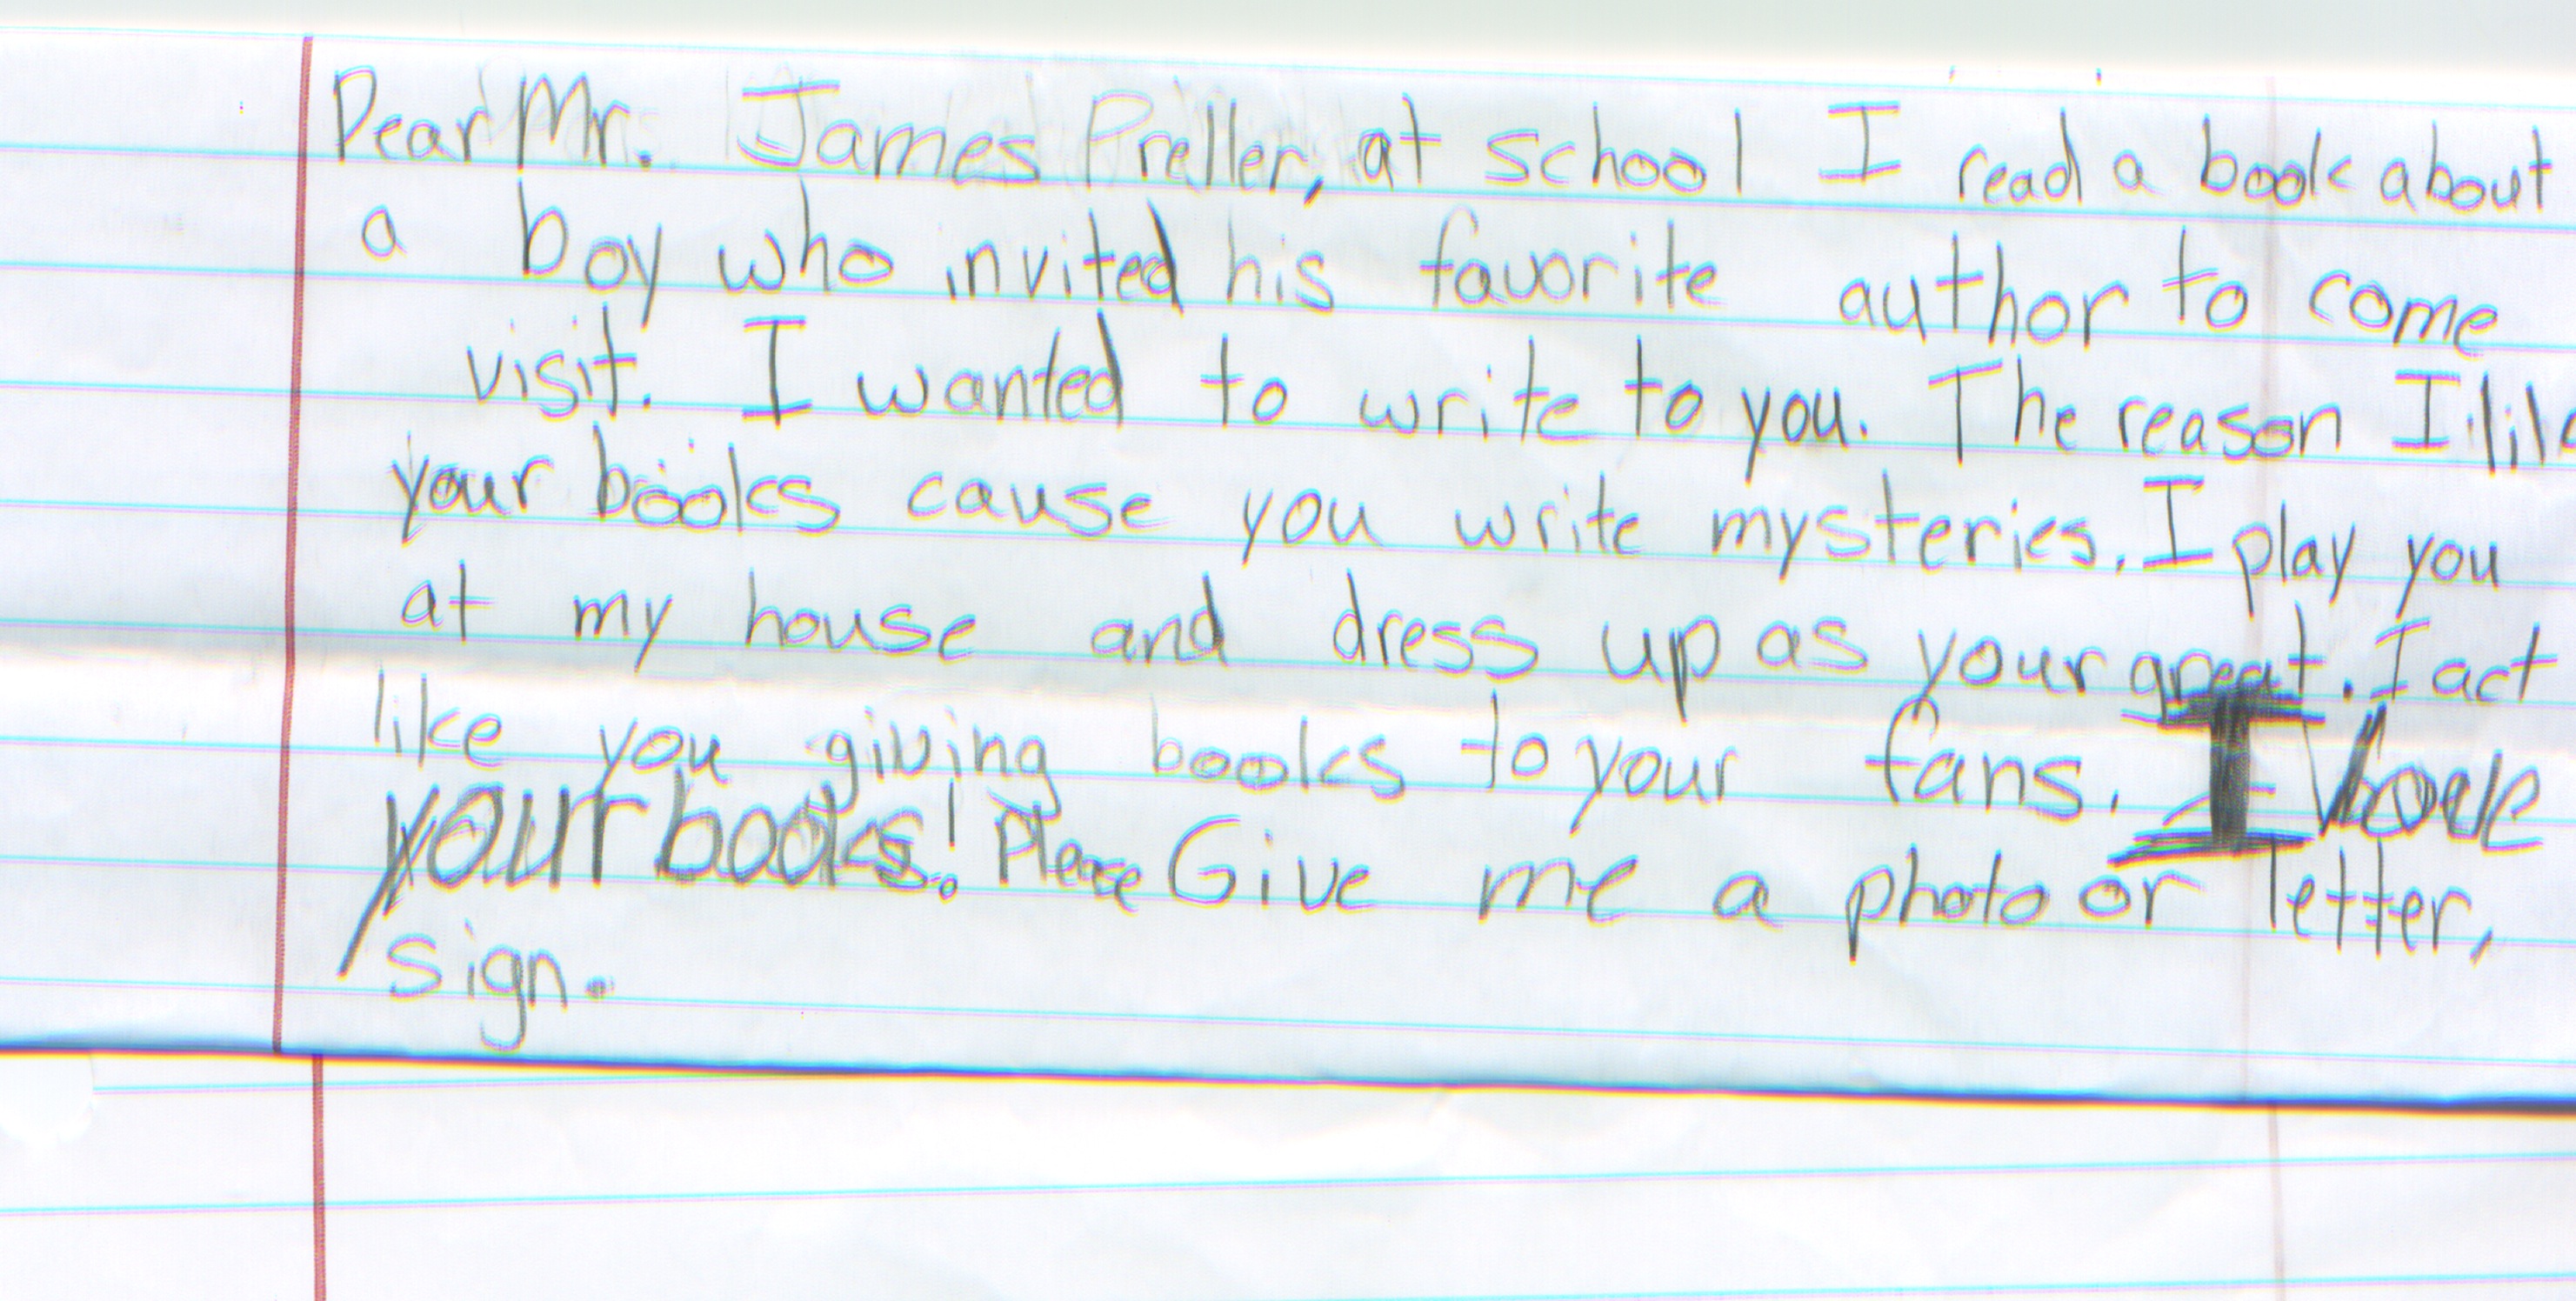 Dear Mr. James Preller, at school I read a book about
a boy who invited his favorite author to come
visit. I wanted to write to you. The reason I like
your books cause you write mysteries. I play you
at my house and dress up as your great. I act
like you giving books to your fans. I love
your books! Please Give me a photo or letter,
sign.